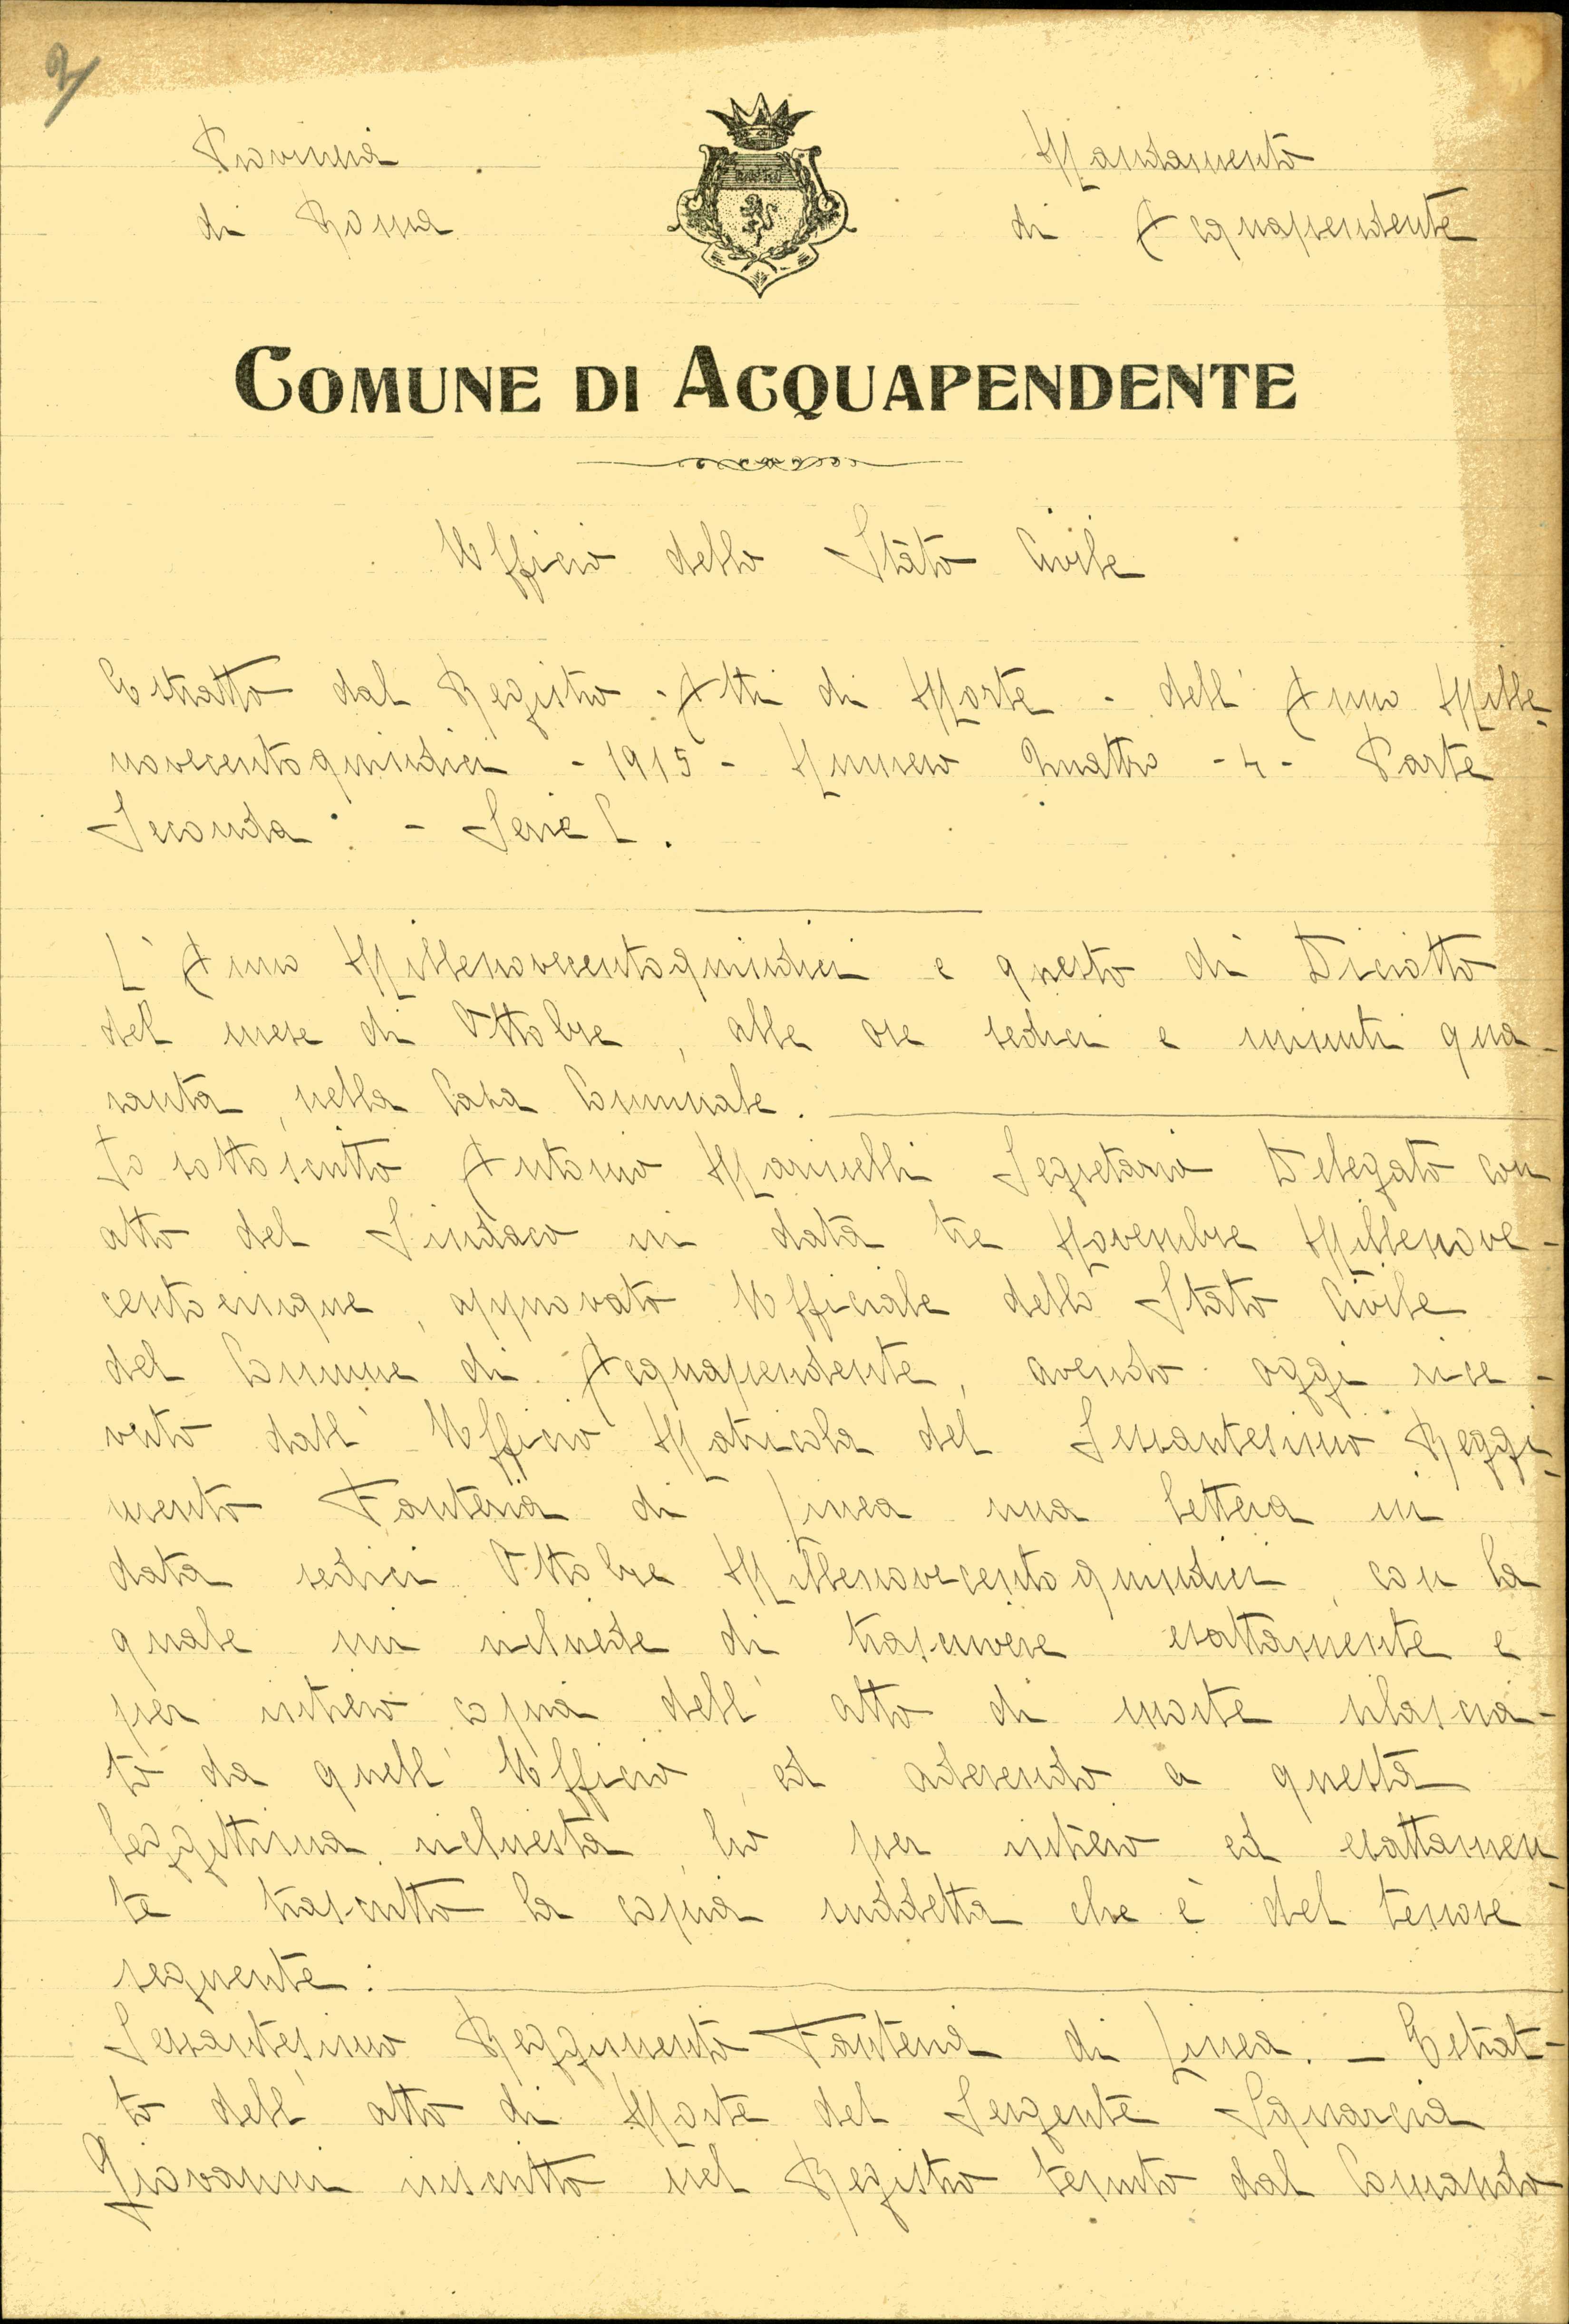 2/
Provincia
di Roma
Mandamento
di Acquapendente
COMUNE DI ACQUAPENDENTE
Ufficio dello Stato Civile
Estratto dal Registro - Atti di Morte - dell' Anno Mille-
novecentoquindici - 1915 - Numero Quattro - 4 - Parte
Seconda: - Serie C.
L' Anno Millenovecentoquindici e questo dì Diciotto
del mese di Ottobre, alle ore sedici e minuti qua-
ranta, nella Casa Comunale.
Io sottoscritto Antonio Marinelli Segretario Delegato con
atto del Sindaco in data tre Novembre Millenove-
centocinque, approvato Ufficiale dello Stato Civile
del Comune di Acquapendente, avendo oggi rice-
vuto dall' Ufficio Matricola del Sessantesimo Reggi-
mento Fanteria di Linea una lettera in
data sedici Ottobre Millenovecentoquindici, con la
quale mi richiede di trascrivere esattamente e
per intiero copia dell' atto di morte rilascia-
to da quell' Ufficio, ed aderendo a questa
leggittima richiesta, ho per intiero ed esattamen-
te trascritto la copia suddetta che è del tenore
seguente:
Sessantesimo Reggimento Fanteria di Linea. - Estrat-
to dell' atto di Morte del Sergente Squarcia
Giovanni inscritto nel Registro tenuto dal Comando